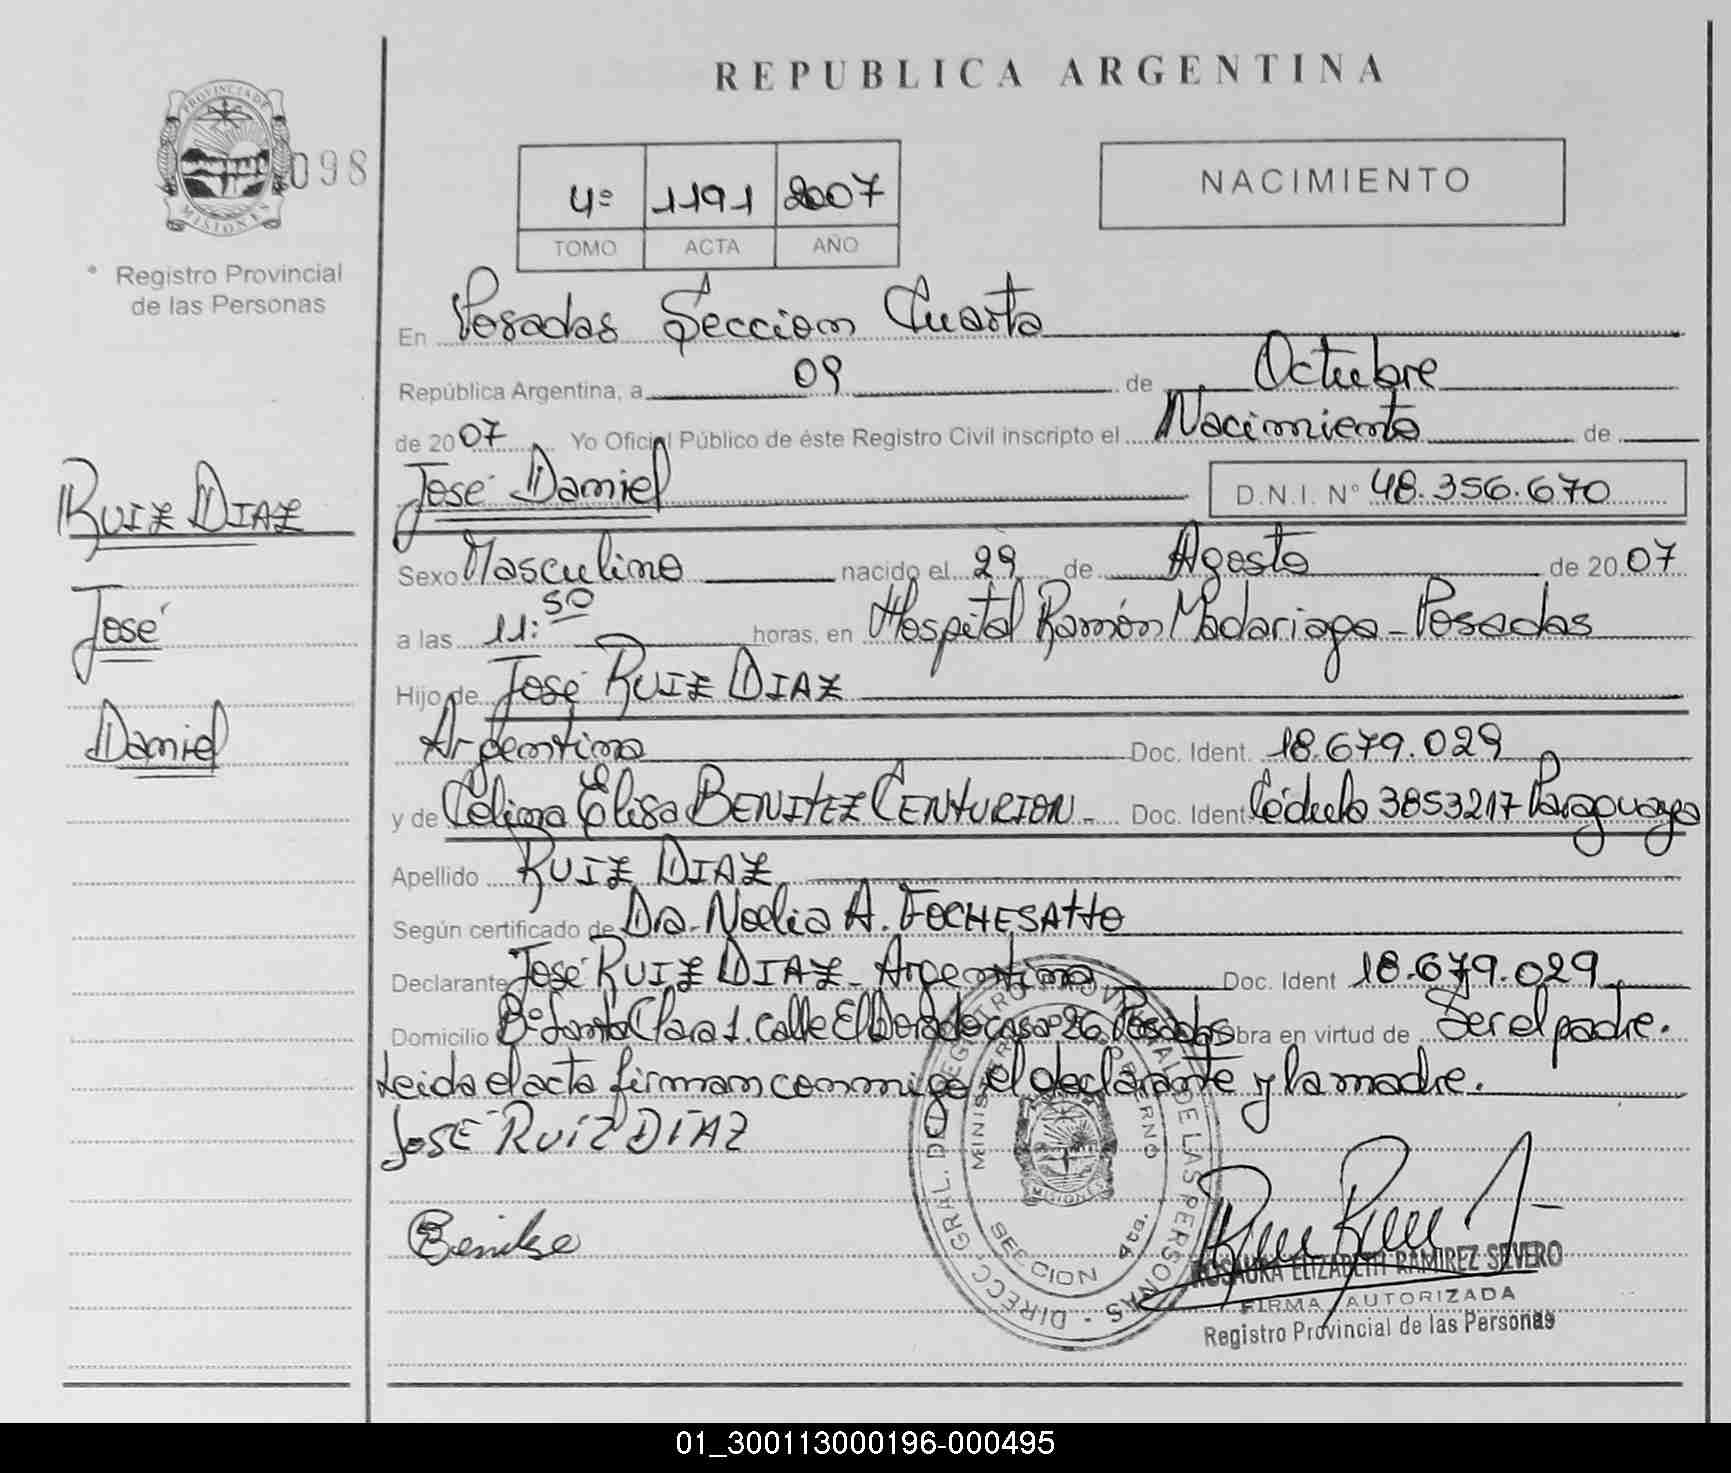 REPUBLICA ARGENTINA
PROVINCIA DE MISIONES
098
Registro Provincial
de las Personas
4º 1191 2007
TOMO ACTA AÑO
NACIMIENTO
En Posadas Seccion Cuarta
República Argentina, a 09 de Octubre
de 2007 Yo Oficial Público de éste Registro Civil inscripto el Nacimiento de
José Daniel D.N.I. N° 48.356.670
RUIZ DIAZ
José
Daniel
Sexo Masculino nacido el 29 de Agosto de 2007
a las 11:50 horas, en Hospital Ramón Madariaga - Posadas
Hijo de José RUIZ DIAZ
Argentino Doc. Ident. 18.679.029
y de Celina Elisa BENITEZ CENTURION - Doc. Ident. Cédula 3853217 Paraguaya
Apellido RUIZ DIAZ
Según certificado de Dra. Noelia A. FOCHESATTO
Declarante José RUIZ DIAZ - Argentino Doc. Ident 18.679.029
Domicilio Bº Santa Clara 1. calle El Dorado casa 26 Posadas Obra en virtud de Ser el padre.
Leida el acta firman conmigo el declarante y la madre.
JOSÉ RUIZ DÍAZ
DIRECC. GRAL. DEL REGISTRO PROVINCIAL DE LAS PERSONAS
MINISTERIO DE GOBIERNO
MISIONES
SECCION 4ta.
ROSAURA ELIZABETH RAMIREZ SEVERO
FIRMA AUTORIZADA
Registro Provincial de las Personas
01_300113000196-000495